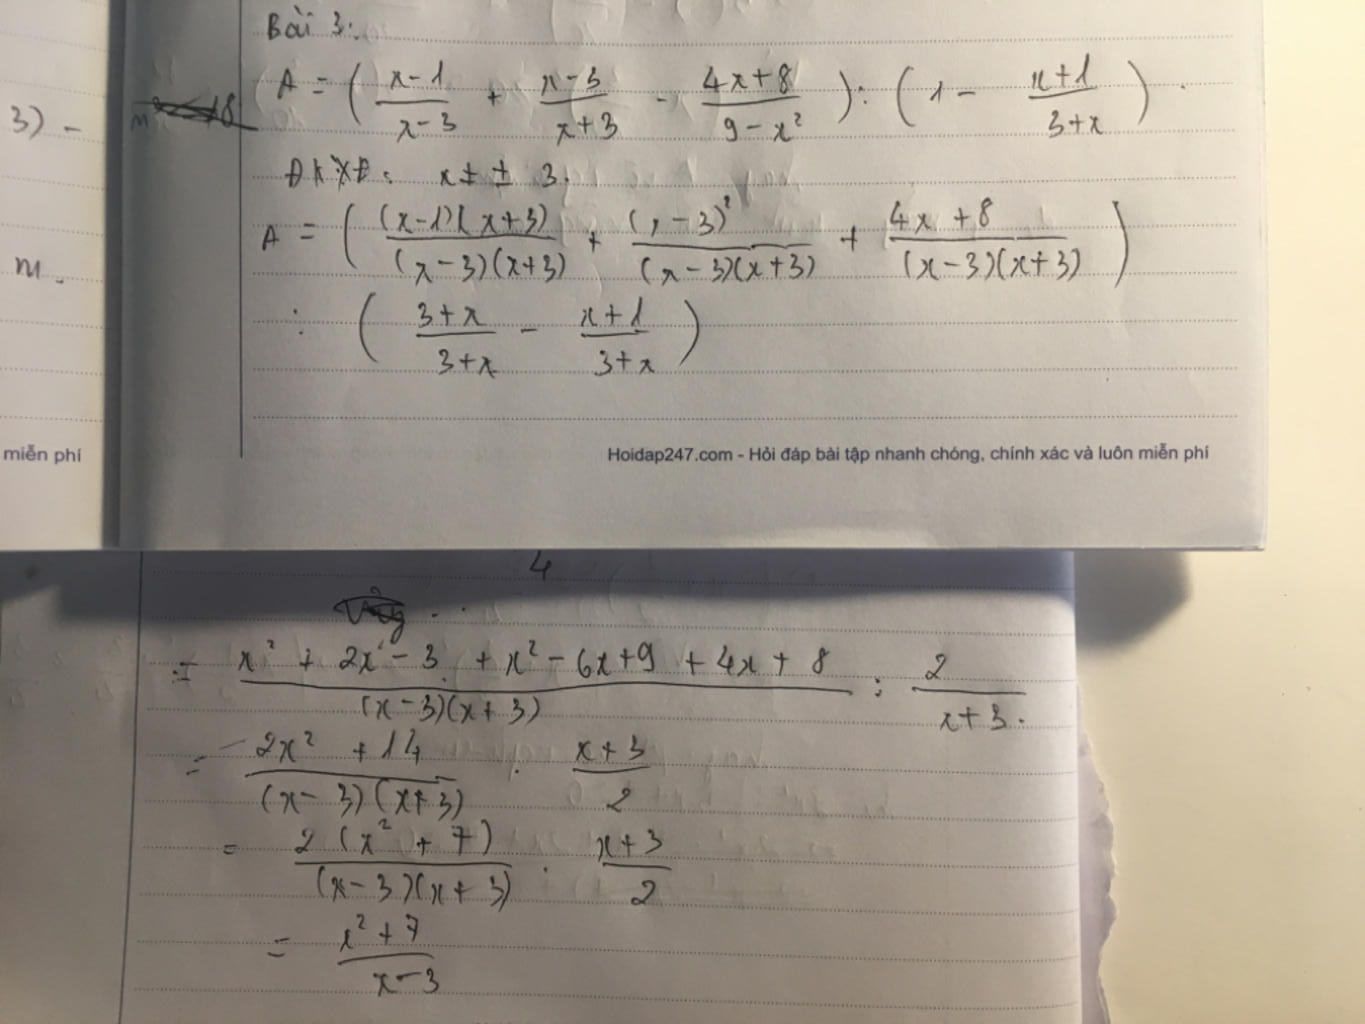 Bài 3:
A = ( \frac{x-1}{x-3} + \frac{x-3}{x+3} - \frac{4x+8}{9-x²} ) : ( 1 - \frac{x+1}{3+x} ) .
3) -
ĐKXĐ: x ≠ ± 3.
A = ( \frac{(x-1)(x+3)}{(x-3)(x+3)} + \frac{(, -3)²}{(x-3)(x+3)} + \frac{4x+8}{(x-3)(x+3)} )
m.
: ( \frac{3+x}{3+x} - \frac{x+1}{3+x} )
miễn phí
Hoidap247.com - Hỏi đáp bài tập nhanh chóng, chính xác và luôn miễn phí
4
= \frac{x² + 2x - 3 + x² - 6x + 9 + 4x + 8}{(x-3)(x+3)} : \frac{2}{x+3}.
= \frac{2x² + 14}{(x-3)(x+3)} . \frac{x+3}{2}
= \frac{2(x² + 7)}{(x-3)(x+3)} . \frac{x+3}{2}
= \frac{x² + 7}{x-3}